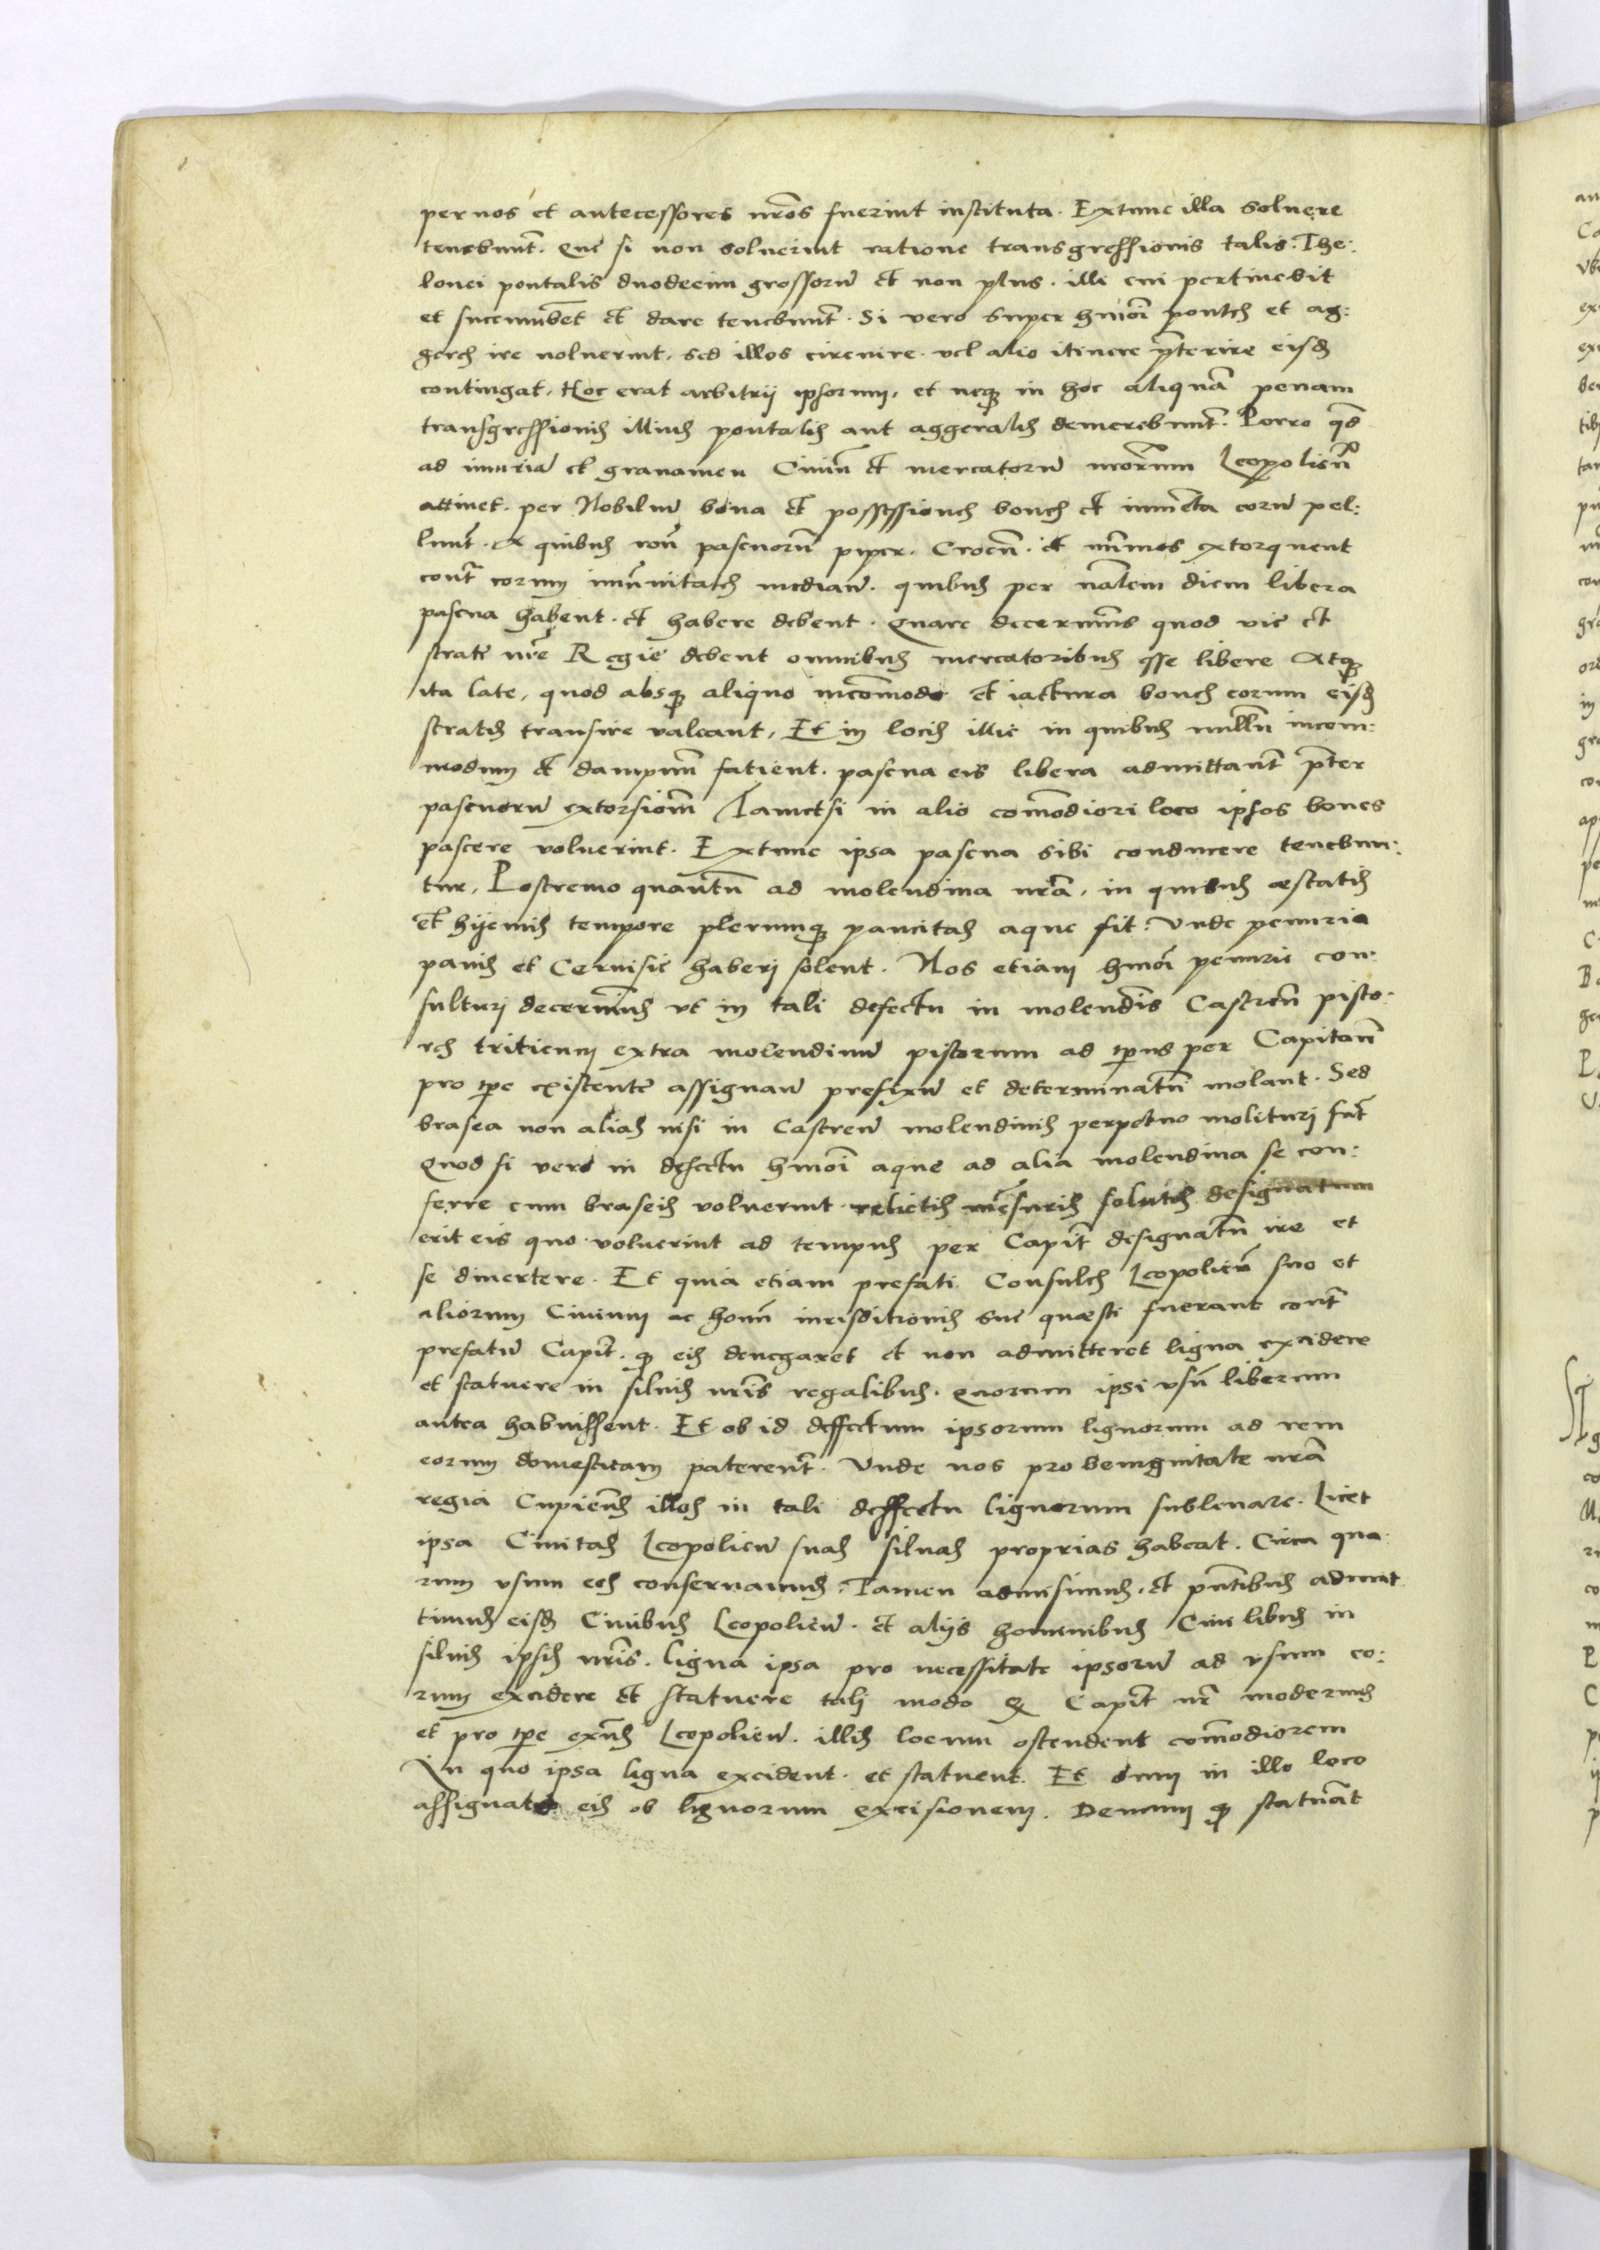 per nos et antecessores nr̃os fuerint instituta. Extunc illa soluere
tenebunt̃. Que si non soluerint ratione transgressionis talis. The:
lonei pontalis duodecim grossorũ et non plus. illi cui pertinebit
et succumbet et dare tenebunt̃. Si vero super hmõi pontes et ag:
geres ire noluerint, sed illos circuire. vel alio itinere p̃terire eisdẽ
contingat, Hoc erat arbitrij ipsorum, et neq₃ in hoc aliquã penam
transgressionis illius pontalis aut aggeralis demerebunt̃. Porro q̃d
ad iniuriã et grauamen Ciuiũ et mercatorũ nr̃orum Leopolien̄
attinet. per Nobiliũ bona et possessiones boues et iumẽta eorũ pel:
lunt̃. A quibus rõñ pascuorũ piper. Crocũ. et nũmos extorquent
cont̃ eorum imũnitates medianĩ. quibus per nãlem diem libera
pascua habent. et habere debent. Quare decernimus quod vie et
strate nr̃e Regie debent omnibus mercatoribus esse libere Atq₃
ita late, quod absq₃ aliquo incõmodo et iactura boues eorum eisdẽ
stratis transire valeant, Et in locis illic in quibus nullũ incom:
modum et dampnũ facient. pascua eis libera admittant̃ p̃ter
pascuorũ extorsionẽ Tametsi in alio cõmodiori loco ipsos boues
pascere voluerint. Extunc ipsa pascua sibi conducere tenebun:
tur, Postremo quantũ ad molendina nr̃a, in quibus æstatis
et hyemis tempore plerumq₃ paucitas aque fit. Vnde penuria
panis et Ceruisie haberi solent. Nos etiam hmõi penurie con:
sulturi decernimus vt in tali defectu in molendis Castreñ pisto:
res triticum extra molendinũ pistorum ad tp̃us per Capitañ
pro tp̃e existentẽ assignanĩ prefixũ et determinatũ molant. Sed
brasea non alias nisi in Castreñ molendinis perpetuo molituri sũt
Quod si vero in defectu hmõi aque ad alia molendina se con:
ferre cum braseis voluerint relictis mẽsuris solutis designatum
erit eis quo voluerint ad tempus per Capit̃ designatũ ire et
se diuertere. Et quia etiam prefati Consules Leopolieñ suo et
aliorum Ciuium ac hoim̃ iurisditionis sue quæsti fuerant cont̃
prefatũ Capit̃. q₃ eis denegaret et non admitteret ligna excidere
et statuere in siluis nr̃is regalibus. Quorum ipsi vsũ liberum
antea habuissent. Et ob id deffectum ipsorum lignorum ad rem
eorum domesticam paterent̃. Vnde nos pro benignitate nr̃a
regia Cupieñs illos in tali deffectu lignorum subleuare. Licet
ipsa Ciuitas Leopolieñ suas siluas proprias habeat. Circa qua:
rum vsum eos conseruamus. Tamen admisimus, et p̃ntibus admit
timus eisdẽ Ciuibus Leopolieñ. et alijs hominibus Ciuilibus in
siluis ipsis nr̃is. ligna ipsa pro necessitate ipsorũ ad vsum eo:
rum excidere et statuere tali modo q₃ Capit̃ nr̃ modernus
et pro tp̃e exñs Leopolieñ. illis locum ostendent cõmodiorem
In quo ipsa ligna excident. et statuent. Et dum in illo loco
assignato eis ob lignorum excisionem. Demum q₃ statuãt